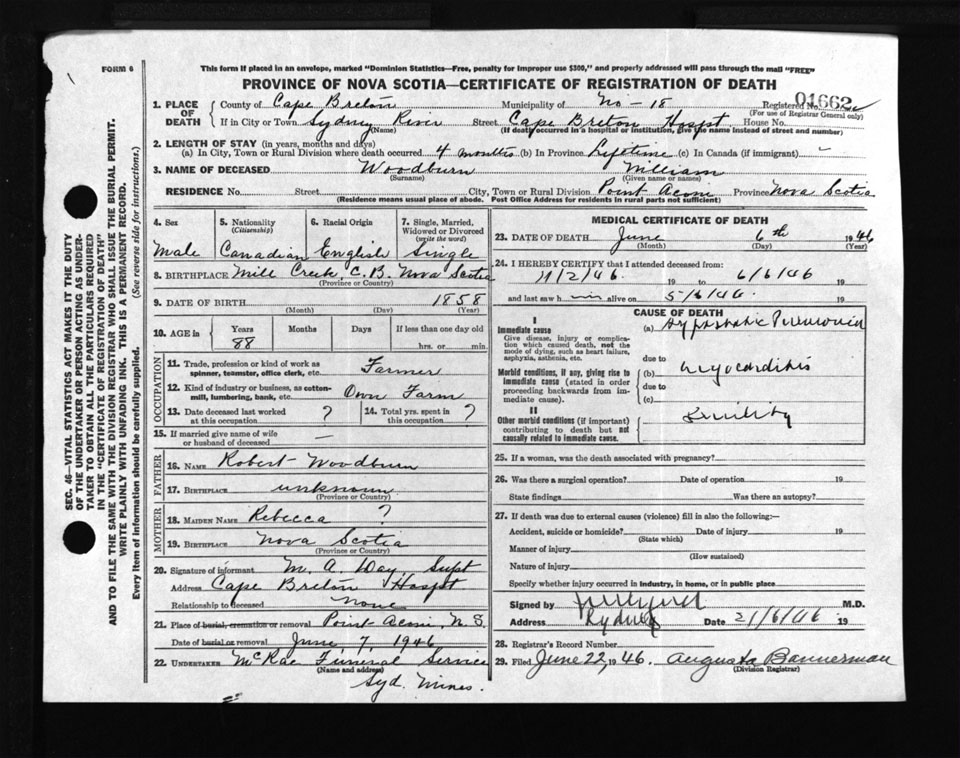 FORM 6
This form if placed in an envelope, marked "Dominion Statistics—Free, penalty for improper use $300," and properly addressed will pass through the mail "FREE"
PROVINCE OF NOVA SCOTIA—CERTIFICATE OF REGISTRATION OF DEATH
01662
1. PLACE OF DEATH County of Cape Breton Municipality of No-18 Registered No.
(For use of Registrar General only)
If in City or Town Sydney River Street Cape Breton Hospt House No.
(Name) (If death occurred in a hospital or institution, give the name instead of street and number)
2. LENGTH OF STAY (in years, months and days)
(a) In City, Town or Rural Division where death occurred 4 months (b) In Province Lifetime (c) In Canada (if immigrant) -
3. NAME OF DECEASED Woodburn William
(Surname) (Given name or names)
RESIDENCE No. Street City, Town or Rural Division Point Aconi Province Nova Scotia
(Residence means usual place of abode. Post Office Address for residents in rural parts not sufficient)
4. Sex 5. Nationality (Citizenship) 6. Racial Origin 7. Single, Married, Widowed or Divorced (write the word)
Male Canadian English Single
8. BIRTHPLACE Mill Creek, C.B. Nova Scotia
(Province or Country)
9. DATE OF BIRTH 1858
(Month) (Day) (Year)
10. AGE in Years Months Days If less than one day old
88 hrs. or min.
OCCUPATION
11. Trade, profession or kind of work as spinner, teamster, office clerk, etc. Farmer
12. Kind of industry or business, as cotton-mill, lumbering, bank, etc. Own Farm
13. Date deceased last worked at this occupation ? 14. Total yrs. spent in this occupation ?
15. If married give name of wife or husband of deceased —
FATHER
16. NAME Robert Woodburn
17. BIRTHPLACE unknown
(Province or Country)
MOTHER
18. MAIDEN NAME Rebecca ?
19. BIRTHPLACE Nova Scotia
(Province or Country)
20. Signature of informant M. A. Day, Supt
Address Cape Breton Hospt
Relationship to deceased None
21. Place of burial, cremation or removal Point Aconi, N.S.
Date of burial or removal June 7, 1946
22. UNDERTAKER McRae Funeral Service
(Name and address)
Syd. Mines.
MEDICAL CERTIFICATE OF DEATH
23. DATE OF DEATH June 6th 1946
(Month) (Day) (Year)
24. I HEREBY CERTIFY that I attended deceased from:
11/2/46. 19 to 6/6/46 19
and last saw him alive on 5/6/46. 19
CAUSE OF DEATH
I
Immediate cause (a) Hypostatic Pneumonia
Give disease, injury or complication which caused death, not the mode of dying, such as heart failure, asphyxia, asthenia, etc.
due to
Morbid conditions, if any, giving rise to immediate cause (stated in order proceeding backwards from immediate cause). (b) Myocarditis
due to
(c)
II
Other morbid conditions (if important) contributing to death but not causally related to immediate cause. Senility
25. If a woman, was the death associated with pregnancy?
26. Was there a surgical operation? Date of operation 19
State findings Was there an autopsy?
27. If death was due to external causes (violence) fill in also the following:—
Accident, suicide or homicide? Date of injury 19
(State which)
Manner of injury
(How sustained)
Nature of injury
Specify whether injury occurred in industry, in home, or in public place
Signed by M.D.
Address Sydney Date 21/6/46 19
28. Registrar's Record Number
29. Filed June 22, 1946. Augusta Bannerman
(Division Registrar)
SEC. 46—VITAL STATISTICS ACT MAKES IT THE DUTY
OF THE UNDERTAKER OR PERSON ACTING AS UNDER-
TAKER TO OBTAIN ALL THE PARTICULARS REQUIRED
IN THE "CERTIFICATE OF REGISTRATION OF DEATH"
AND TO FILE THE SAME WITH THE DIVISION REGISTRAR WHO SHALL ISSUE THE BURIAL PERMIT.
WRITE PLAINLY WITH UNFADING INK. THIS IS A PERMANENT RECORD.
Every item of information should be carefully supplied. (See reverse side for instructions.)